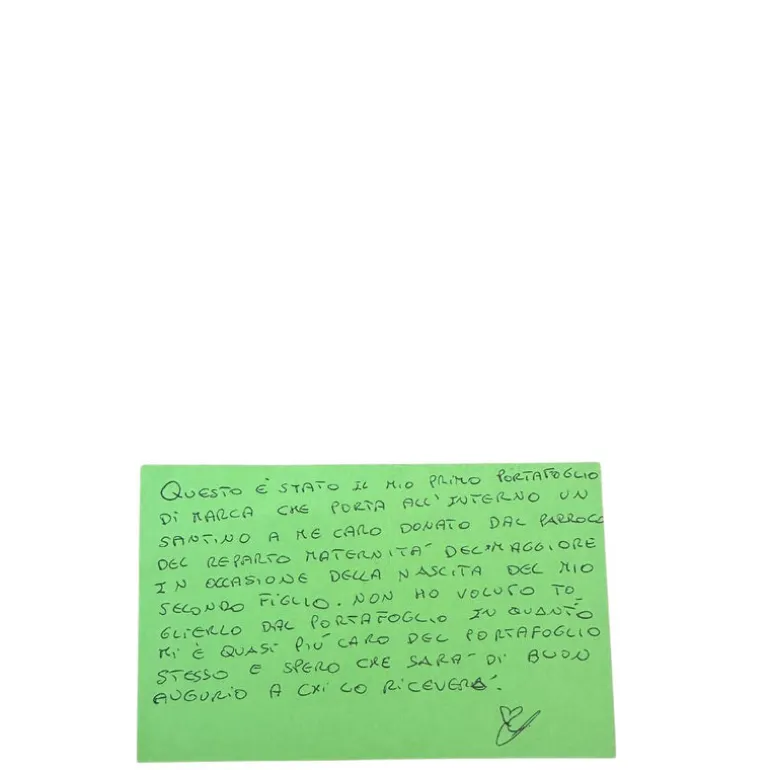 QUESTO È STATO IL MIO PRIMO PORTAFOGLIO
DI MARCA CHE PORTA ALL'INTERNO UN
SANTINO A ME CARO DONATO DAL PARROCO
DEL REPARTO MATERNITÀ DEL MAGGIORE
IN OCCASIONE DELLA NASCITA DEL MIO
SECONDO FIGLIO. NON HO VOLUTO TO_
GLIERLO DAL PORTAFOGLIO IN QUANTO
MI È QUASI PIÙ CARO DEL PORTAFOGLIO
STESSO E SPERO CHE SARÀ DI BUON
AUGURIO A CHI LO RICEVERÀ.